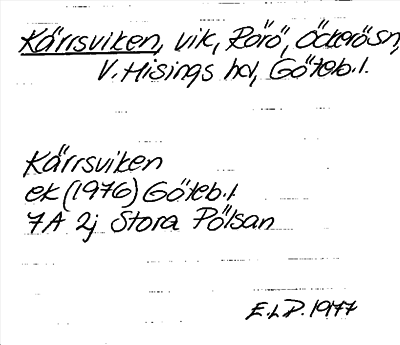 Kärrsviken, vik, Rörö, Öckerösn,
V. Hisings hd, Göteb. l.
Kärrsviken
ek (1976) Göteb. l
7A 2j Stora Pölsan
E.L.P. 1977